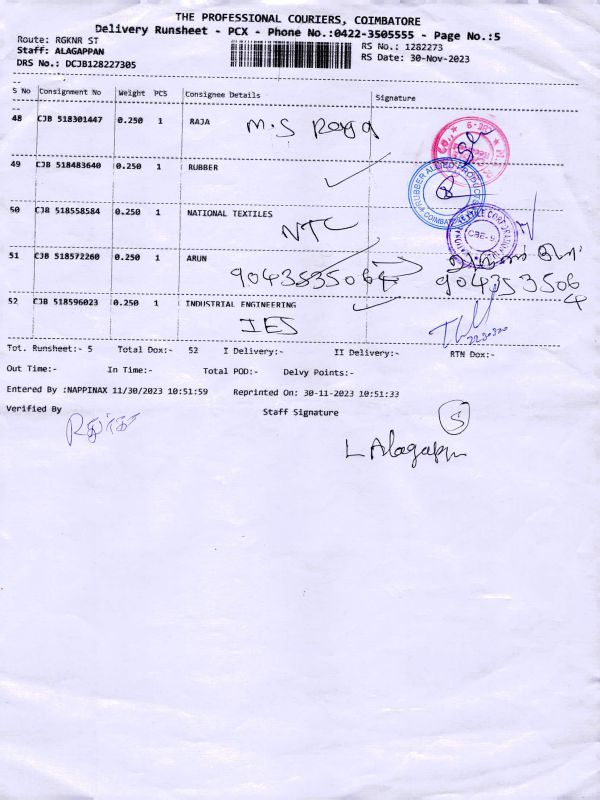 THE PROFESSIONAL COURIERS, COIMBATORE
Delivery Runsheet - PCX - Phone No.:0422-3505555 - Page No.:5
Route: RGKNR ST RS No.: 1282273
Staff: ALAGAPPAN RS Date: 30-Nov-2023
DRS No.: DCJB128227305
S No Consignment No Weight PCS Consignee Details Signature
48 CJB 518301447 0.250 1 RAJA M.S
49 CJB 518483640 0.250 1 RUBBER
RUBBER ALLIED PRODUCTS COIMBATORE
50 CJB 518558584 0.250 1 NATIONAL TEXTILES NTC
NATIONAL TEXTILE CORPORATION CBE-9
51 CJB 518572260 0.250 1 ARUN
9043535064 9043535064
52 CJB 518596023 0.250 1 INDUSTRIAL ENGINEERING
IES
Tot. Runsheet:- 5 Total Dox:- 52 I Delivery:- II Delivery:- RTN Dox:-
Out Time:- In Time:- Total POD:- Delvy Points:-
Entered By :NAPPINAX 11/30/2023 10:51:59 Reprinted On: 30-11-2023 10:51:33
Verified By Staff Signature
S
L Alagappn